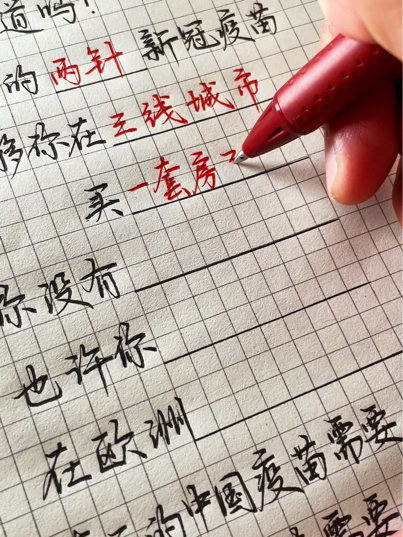 道吗？
的两针新冠疫苗
你在三线城市
买一套房
你没有
也许你
在欧洲
的中国疫苗需要
需要